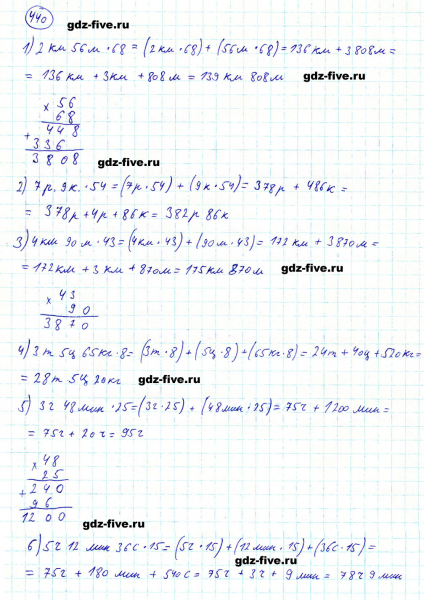 440
gdz-five.ru
1) 2 км 56 м · 68 = (2 км · 68) + (56 м · 68) = 136 км + 3808 м =
= 136 км + 3 км + 808 м = 139 км 808 м
gdz-five.ru
× 56
68
+ 448
336
3808
gdz-five.ru
2) 7 р. 9 к. · 54 = (7 р · 54) + (9 к · 54) = 378 р + 486 к =
= 378 р + 4 р + 86 к = 382 р 86 к
3) 4 км 90 м · 43 = (4 км · 43) + (90 м · 43) = 172 км + 3870 м =
= 172 км + 3 км + 870 м = 175 км 870 м
gdz-five.ru
× 43
90
3870
4) 3 т 5 ц 65 кг · 8 = (3 т · 8) + (5 ц · 8) + (65 кг · 8) = 24 т + 40 ц + 520 кг =
= 28 т 5 ц 20 кг
gdz-five.ru
5) 3 ч 48 мин · 25 = (3 ч · 25) + (48 мин · 25) = 75 ч + 1200 мин =
= 75 ч + 20 ч = 95 ч
× 48
25
+ 240
96
1200
gdz-five.ru
6) 5 ч 12 мин 36 с · 15 = (5 ч · 15) + (12 мин · 15) + (36 с · 15) =
gdz-five.ru
= 75 ч + 180 мин + 540 с = 75 ч + 3 ч + 9 мин = 78 ч 9 мин